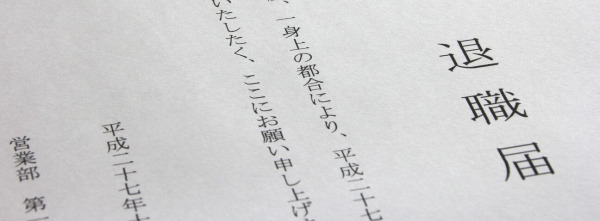 退職届
、一身上の都合により、平成二十七
いたしたく、ここにお願い申し上げ
平成二十七年十
営業部 第一